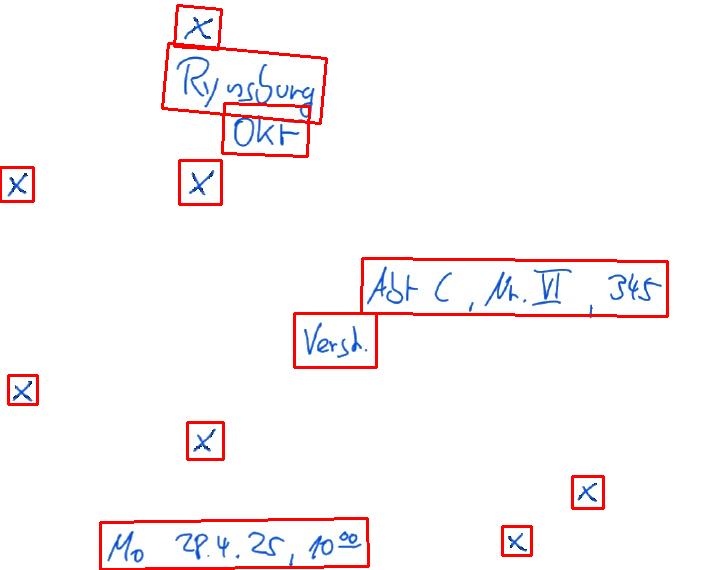 x
Rynsburg
Okt
x x
Abt C, Nr. VI, 345
Versch.
x
x
x
Mo 28.4.25, 10⁰⁰ x